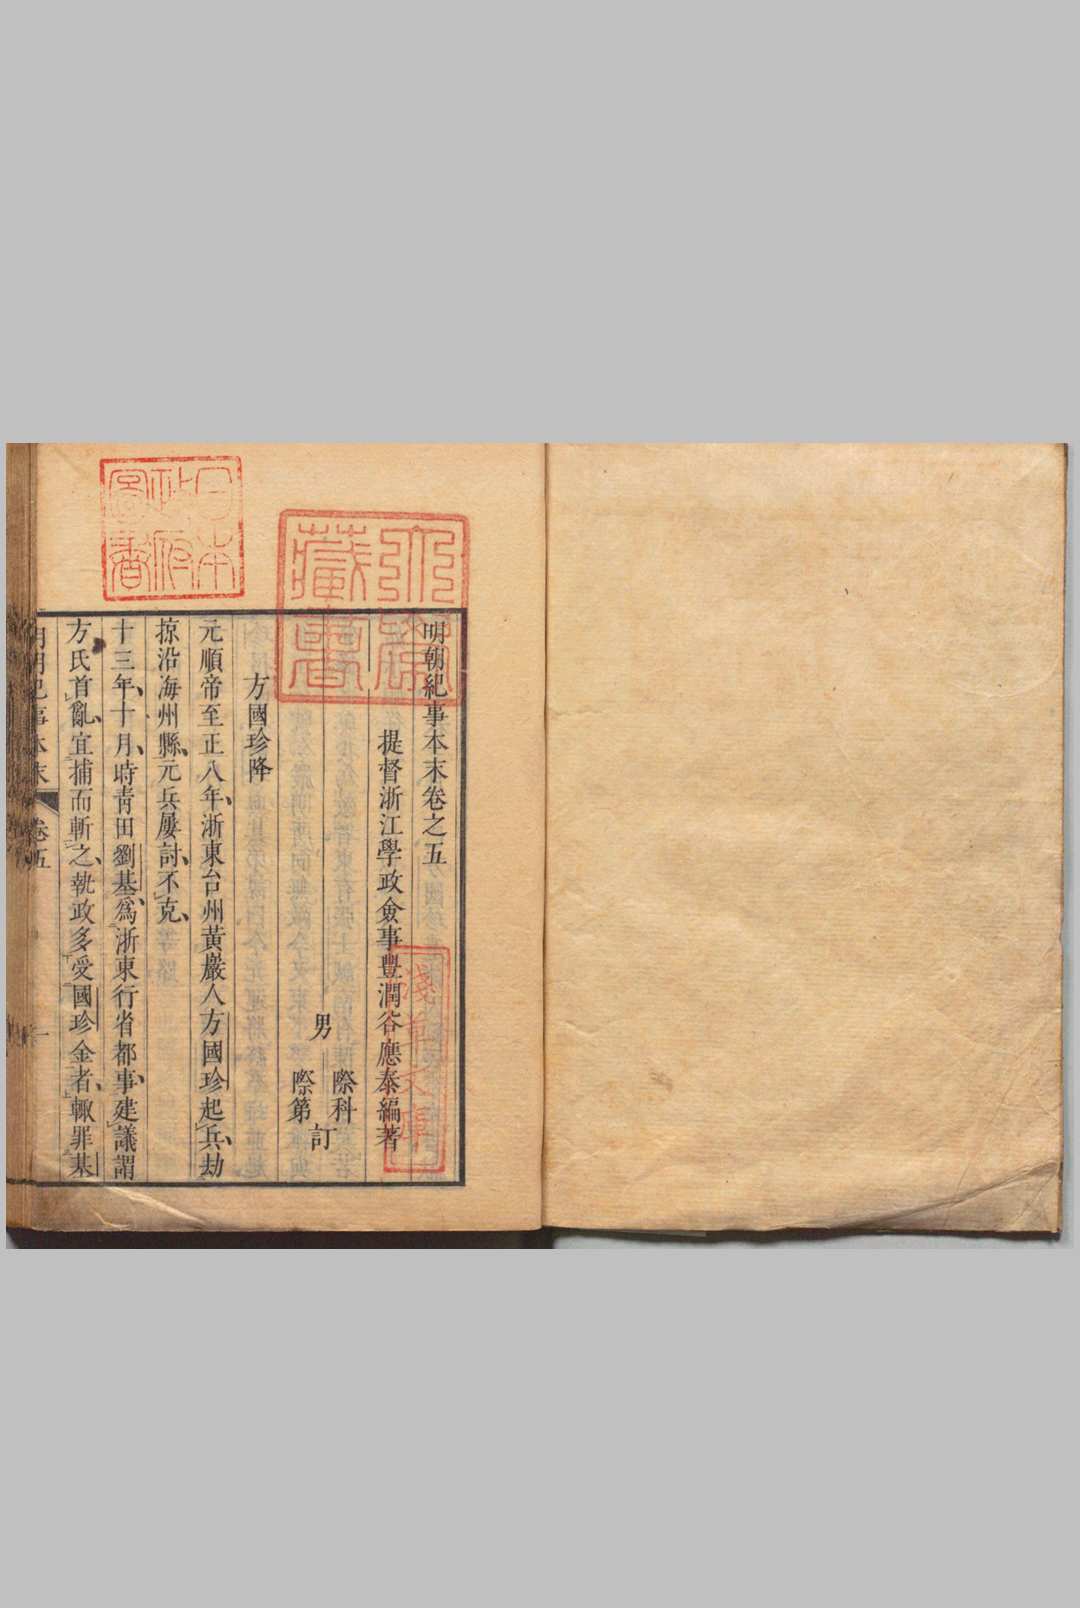 明朝紀事本末卷之五
提督浙江學政僉事豐潤谷應泰編著
男 際科
際第
訂
方國珍降
元順帝至正八年浙東台州黃巖人方國珍起兵劫
掠沿海州縣元兵屢討不克
十三年十月時青田劉基為浙東行省都事建議謂
方氏首亂宜捕而斬之執政多受國珍金者輙罪基
明朝紀事本末
卷五
一
日本
政府
圖書
藏書
淺草文庫